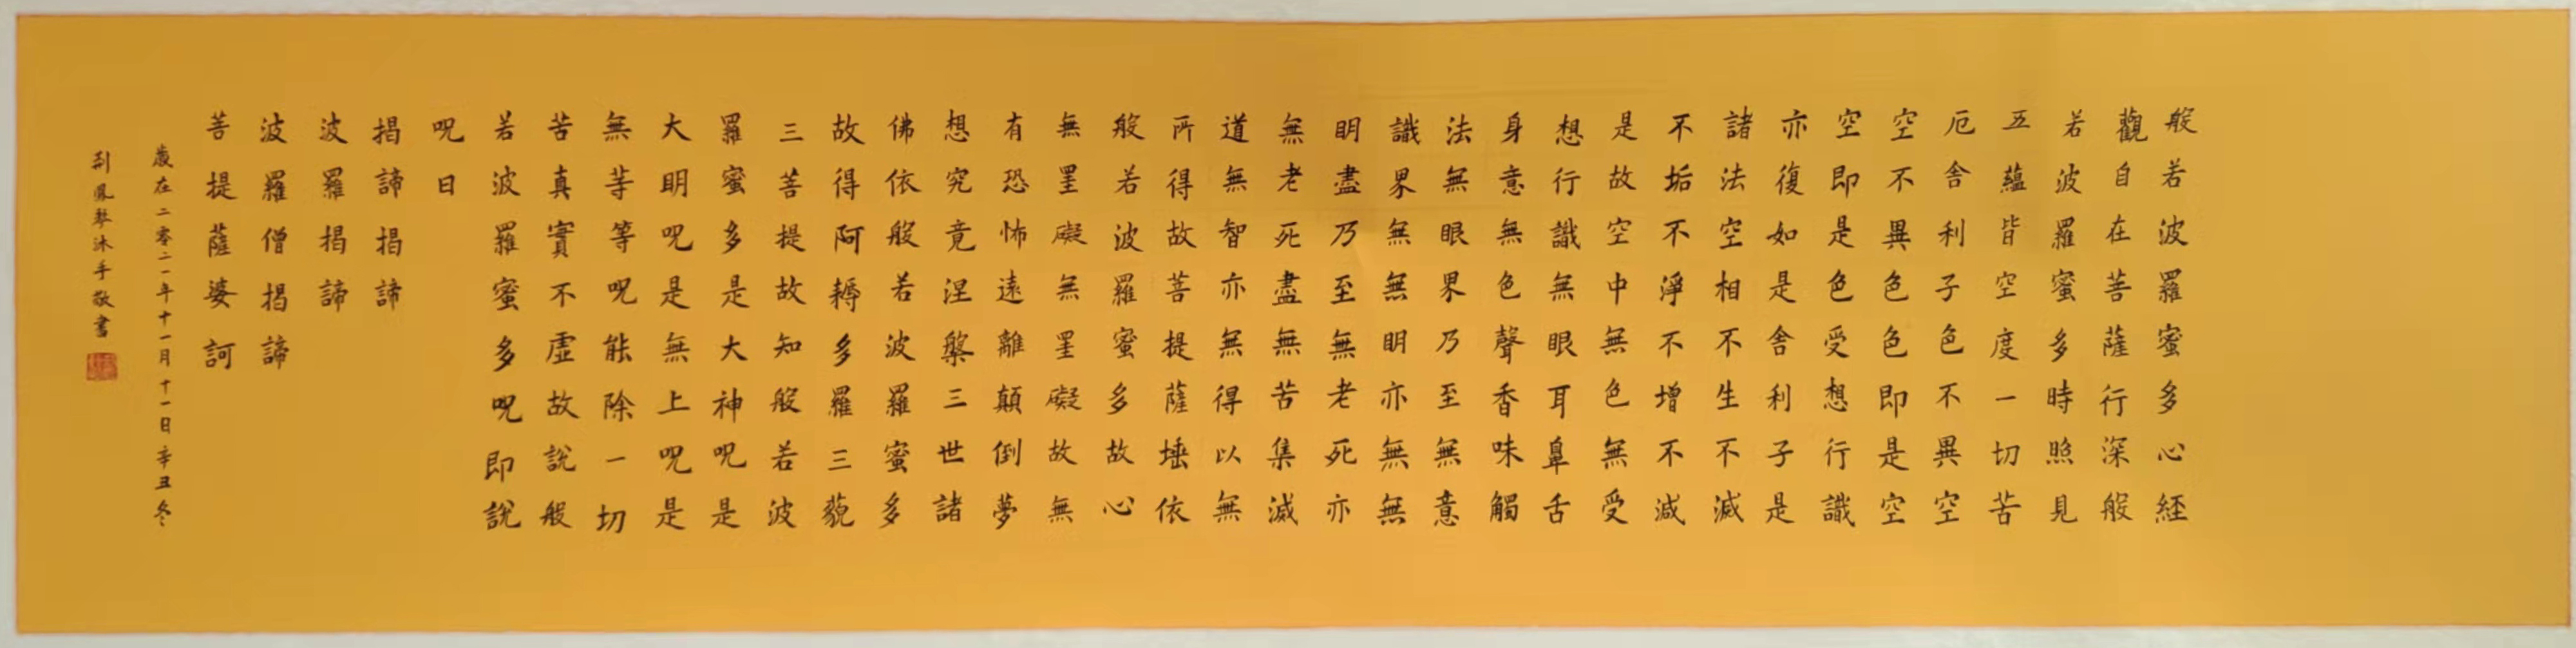 般若波羅蜜多心經
觀自在菩薩行深般
若波羅蜜多時照見
五蘊皆空度一切苦
厄舍利子色不異空
空不異色色即是空
空即是色受想行識
亦復如是舍利子是
諸法空相不生不滅
不垢不淨不增不減
是故空中無色無受
想行識無眼耳鼻舌
身意無色聲香味觸
法無眼界乃至無意
識界無無明亦無無
明盡乃至無老死亦
無老死盡無苦集滅
道無智亦無得以無
所得故菩提薩埵依
般若波羅蜜多故心
無罣礙無罣礙故無
有恐怖遠離顛倒夢
想究竟涅槃三世諸
佛依般若波羅蜜多
故得阿耨多羅三藐
三菩提故知般若波
羅蜜多是大神呪是
大明呪是無上呪是
無等等呪能除一切
苦真實不虛故說般
若波羅蜜多呪即說
呪曰
揭諦揭諦
波羅揭諦
波羅僧揭諦
菩提薩婆訶
歲在二零二一年十一月十一日辛丑冬
鳳琴沐手敬書